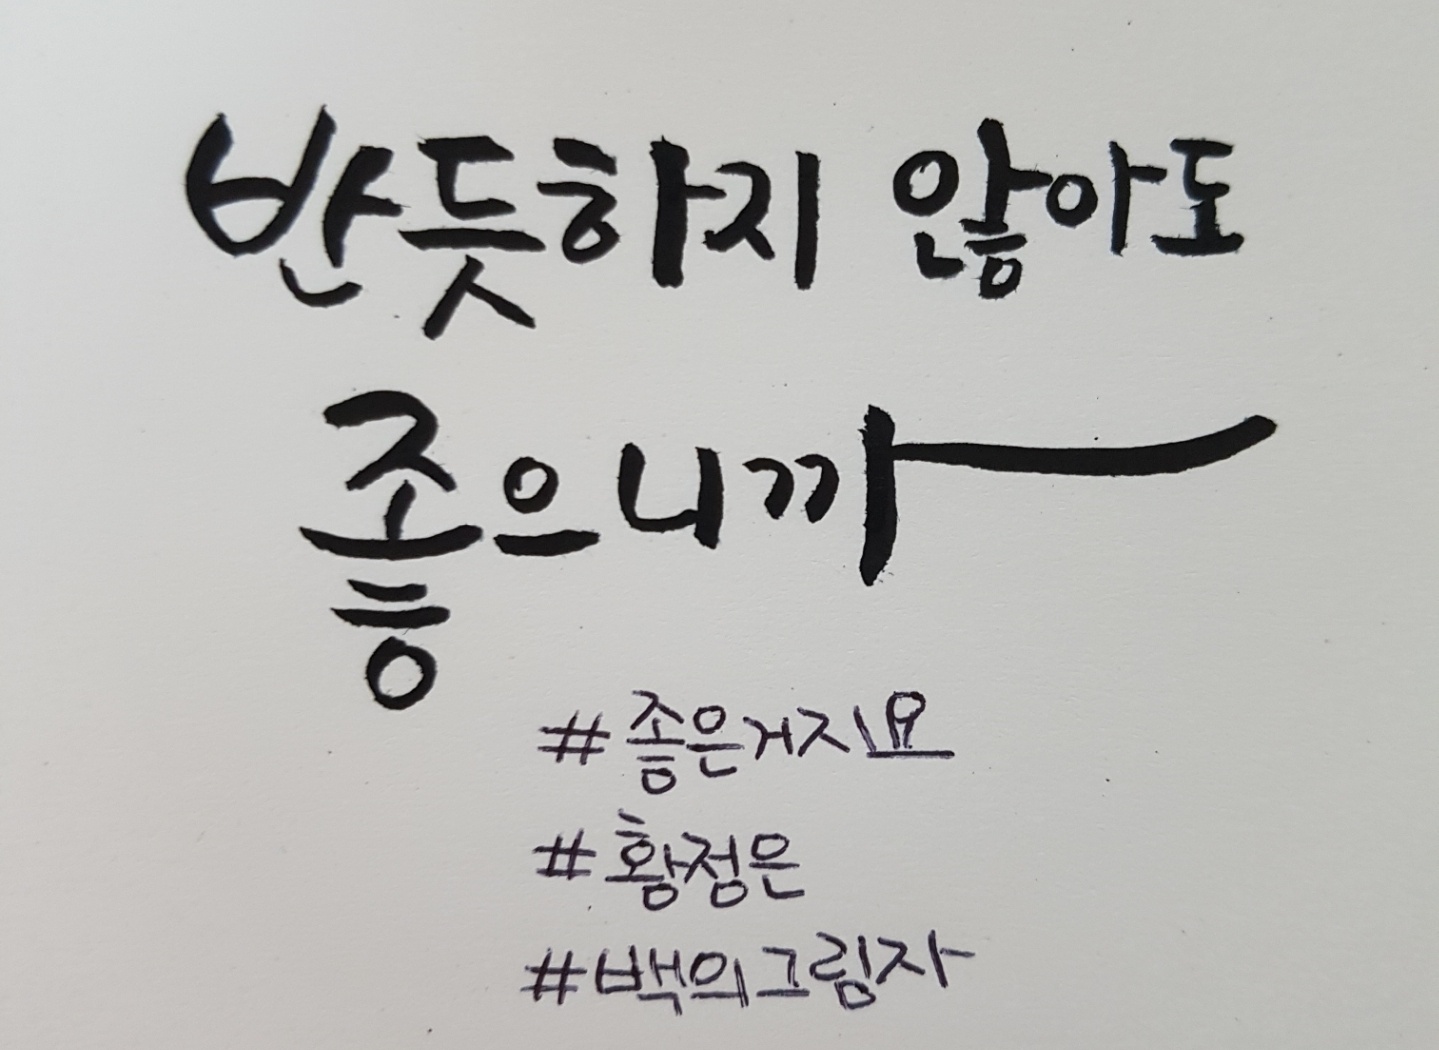 반듯하지 않아도
좋으니까
#좋은거지요
#황정은
#백의그림자